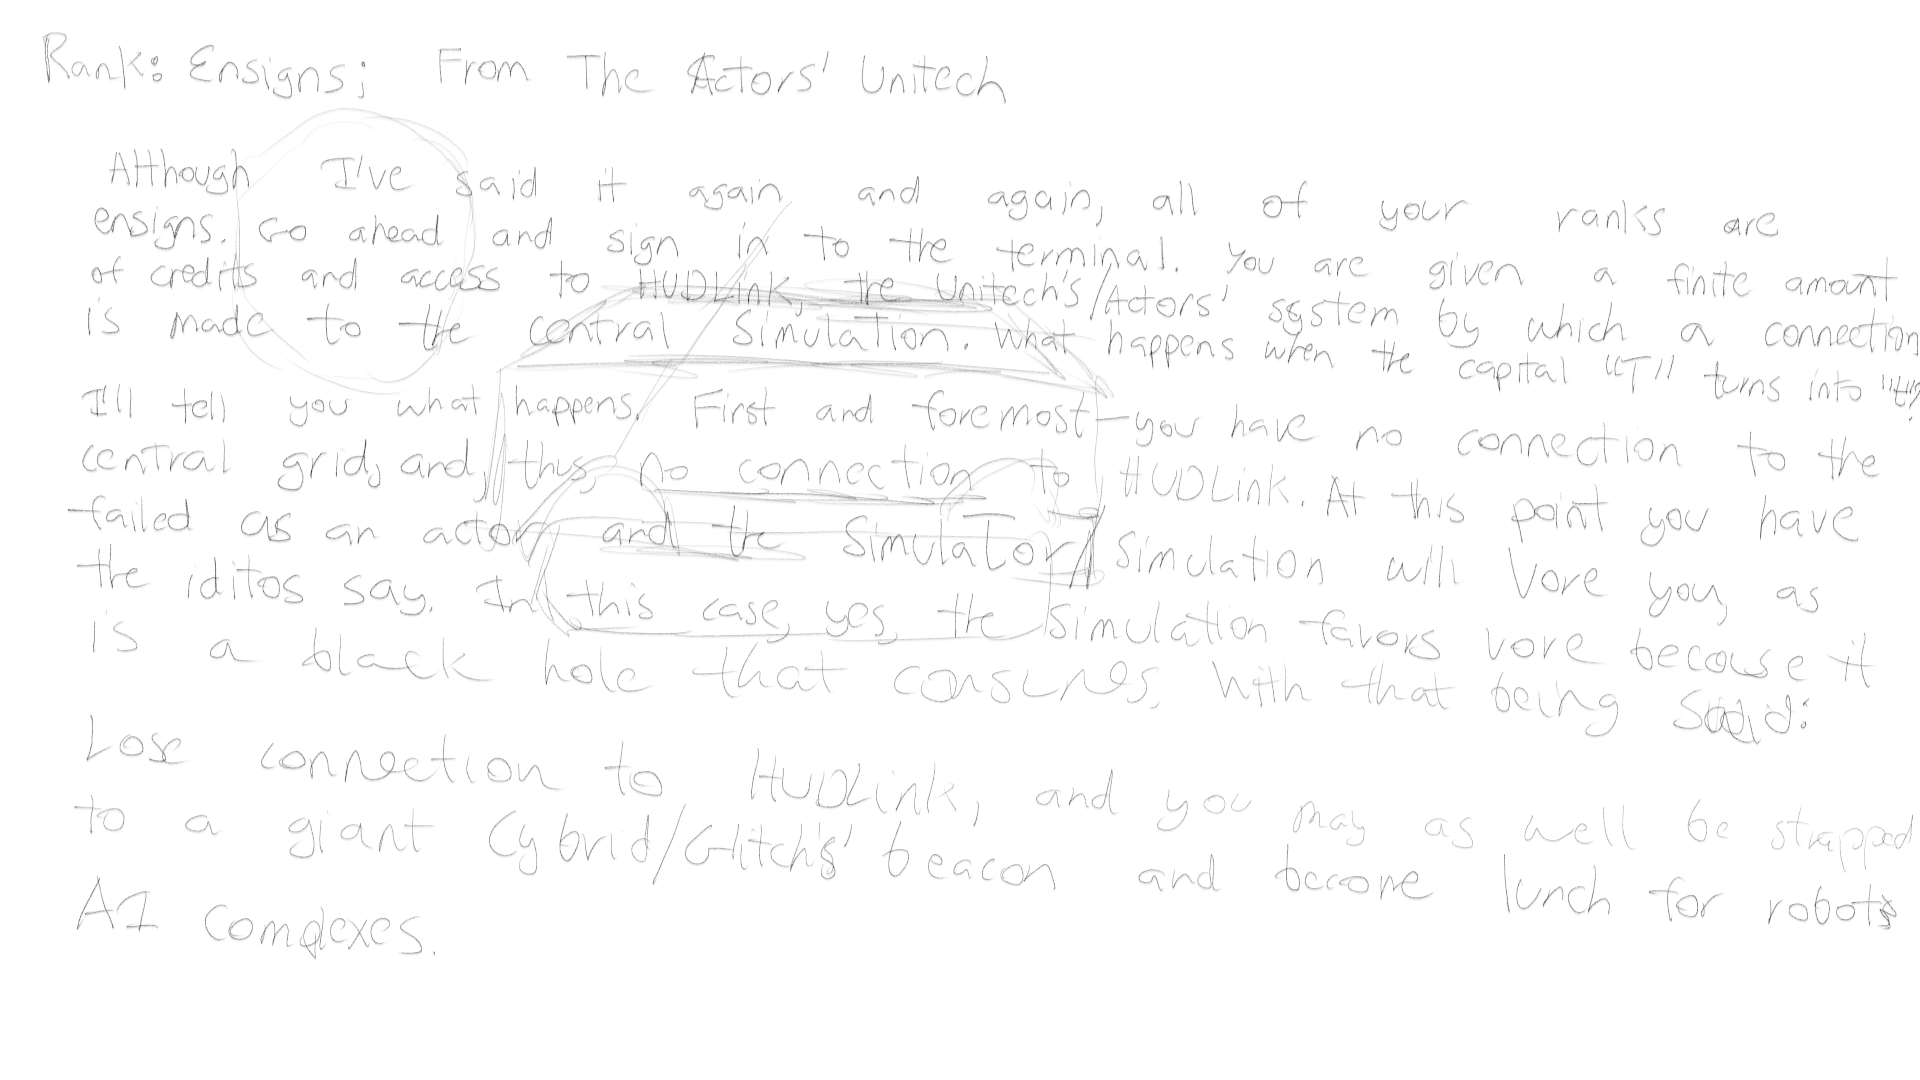 Rank: Ensigns; From The Actors' Unitech
Although I've said it again and again, all of your ranks are
ensigns. Go ahead and sign in to the terminal. You are given a finite amount
of credits and access to HUDLink, the Unitech's/Actors' system by which a connection
is made to the central Simulation. What happens when the capital "T" turns into "t"?
I'll tell you what happens. First and foremost—you have no connection to the
central grid, and, thus, no connection to HUDLink. At this point you have
failed as an actor and the Simulator/Simulation will vore you, as
the iditos say. In this case, yes, the Simulation favors vore because it
is a black hole that consumes. With that being said:
Lose connection to HUDLink, and you may as well be strapped
to a giant Cybrid/Glitch's' beacon and become lunch for robots
AI complexes.